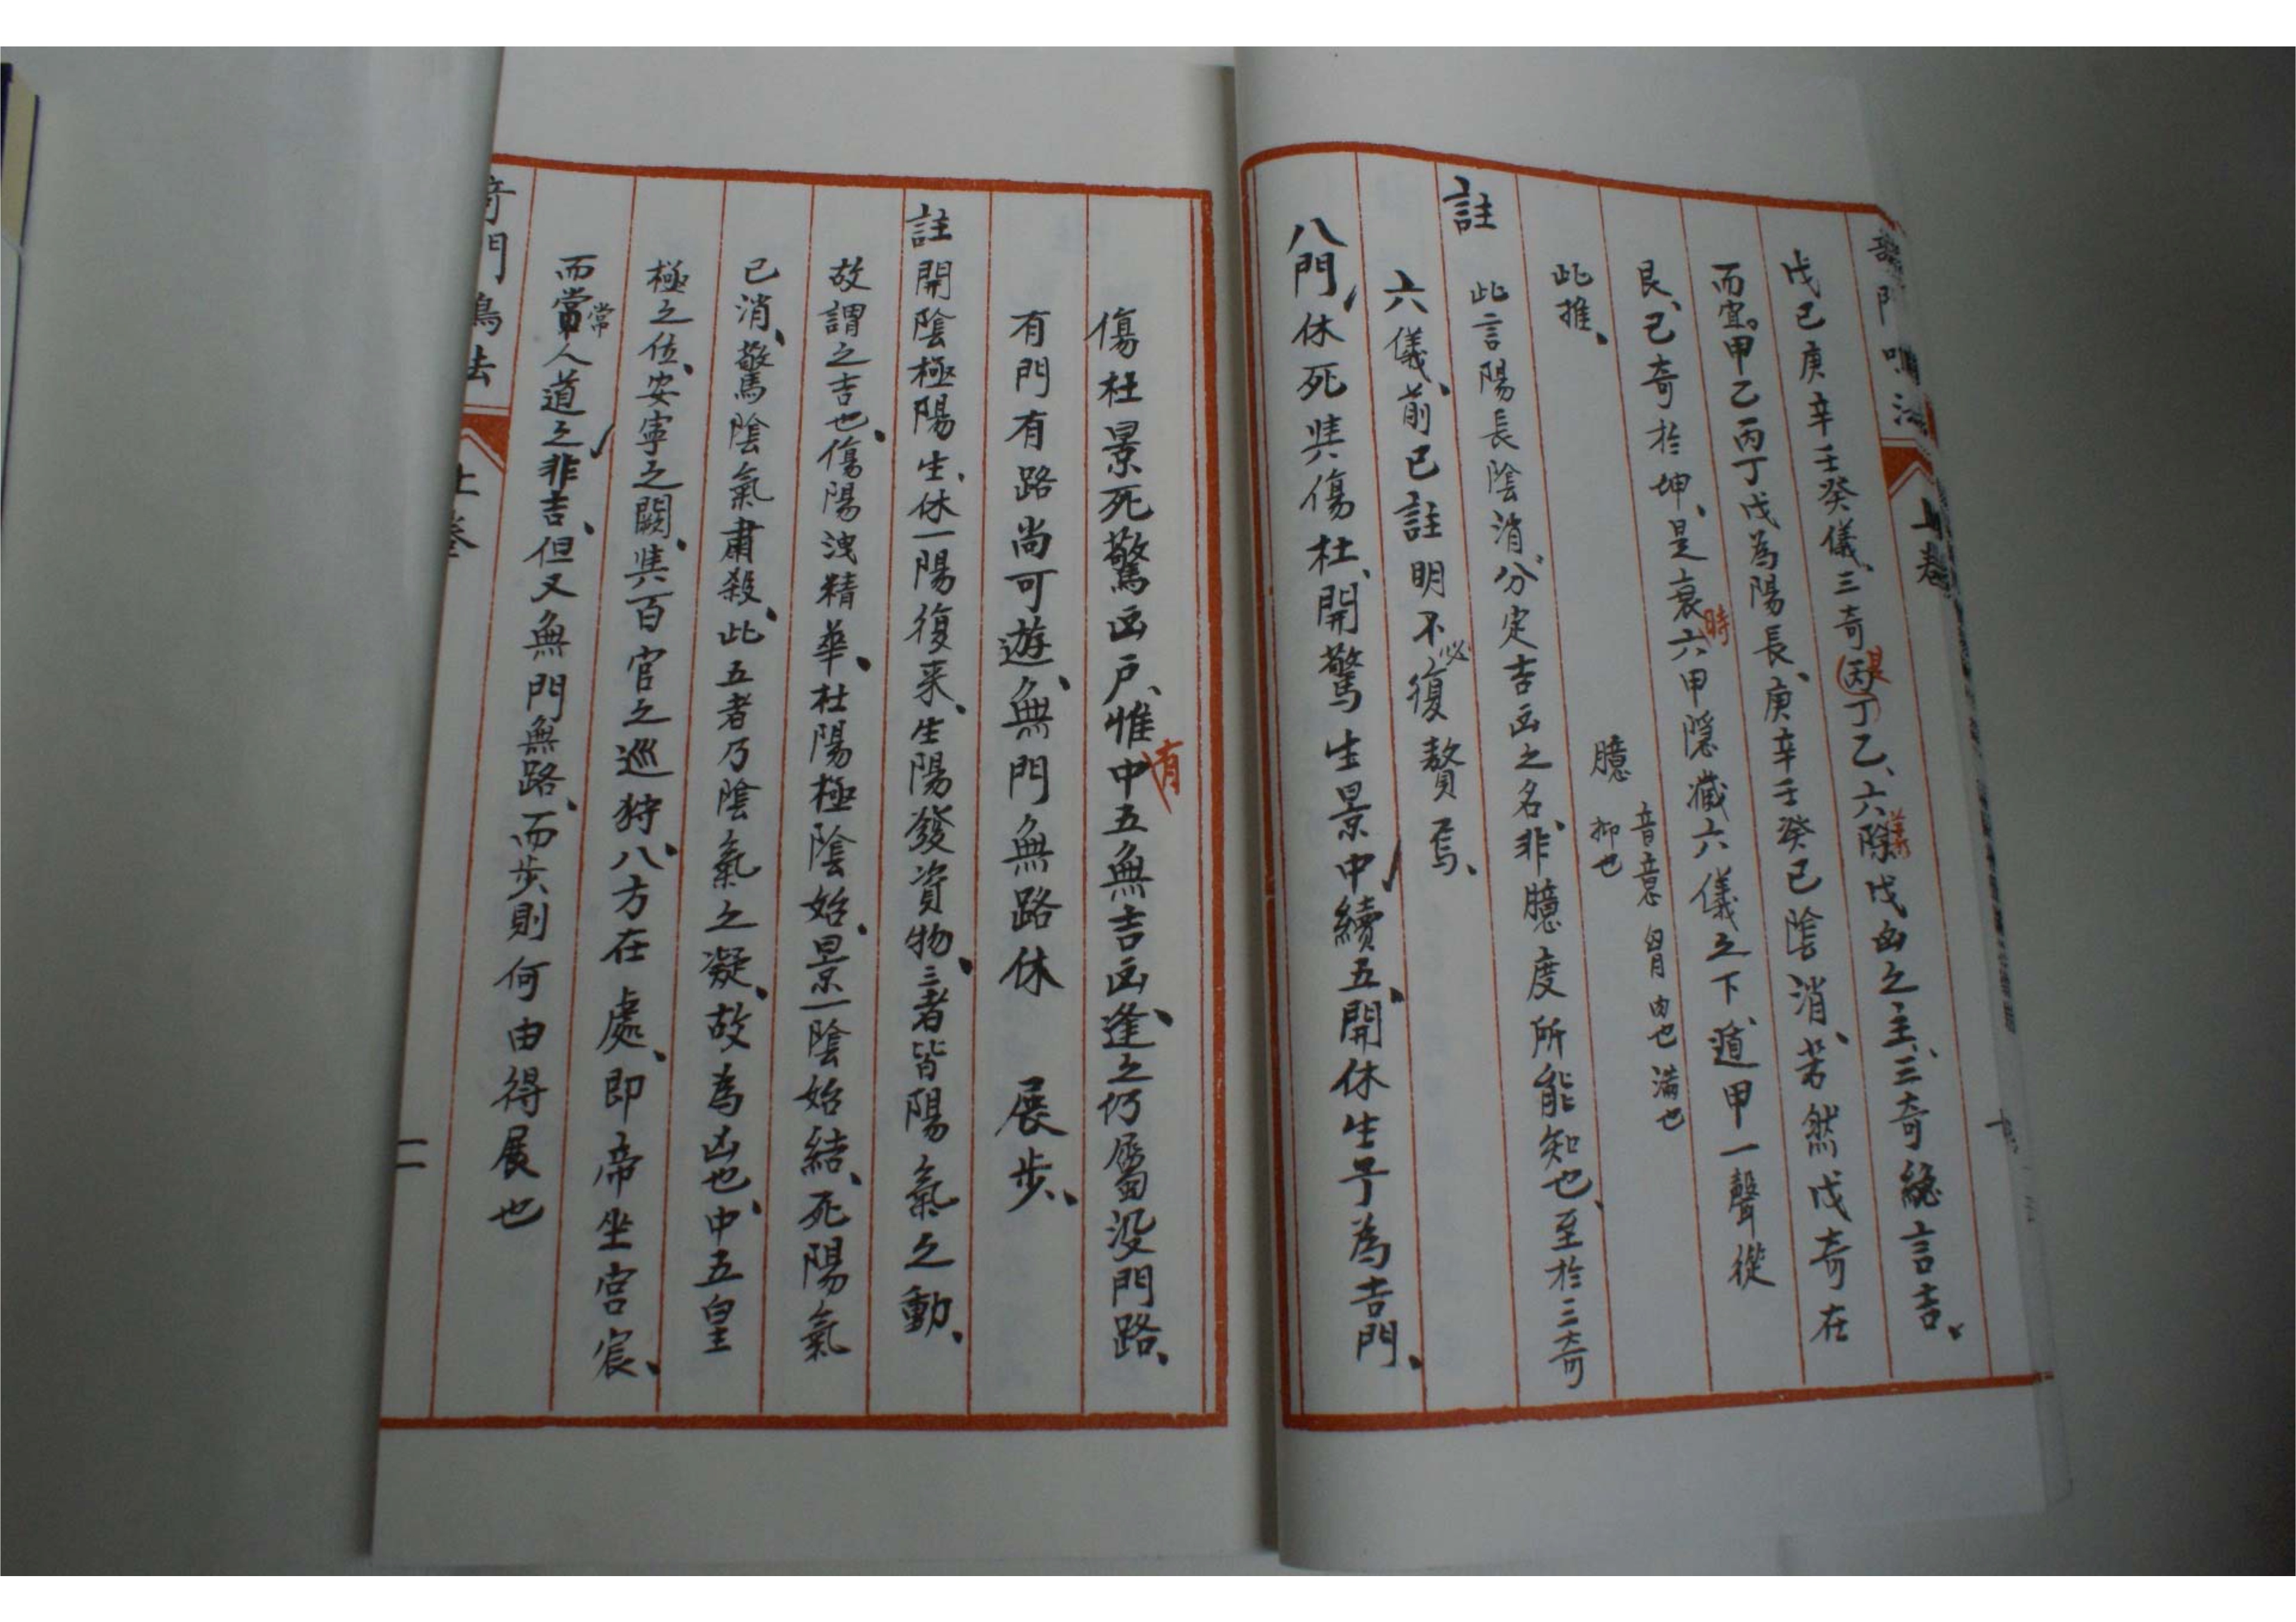 奇門鳴法 上卷
戊己庚辛壬癸儀、三奇丙丁乙、六除戊凶之主、三奇總言吉。
是
儀
而宜。甲乙丙丁戊為陽長、庚辛壬癸己陰消、若然戊奇在
艮、己奇於坤、是衰六甲隱藏六儀之下、遁甲一聲從
時
此推、
臆 音意 胷肉也 滿也
抑也
註 此言陽長陰消、分定吉凶之名、非臆度所能知也、至於三奇
六儀、前已註明不復贅焉、
必
八門、休死與傷杜、開驚生景中續五、開休生兮為吉門、
傷杜景死驚凶戶、惟中五無吉凶、逢之仍屬没門路、
有
有門有路尚可遊、無門無路休 展步、
註 開陰極陽生、休一陽復来、生陽發資物、三者皆陽氣之動、
故謂之吉也、傷陽洩精華、杜陽極陰始、景一陰始結、死陽氣
已消、驚陰氣肅殺、此五者乃陰氣之凝、故為凶也、中五皇
極之位、安寧之闕、與百官之巡狩、八方在處、即帝坐宮宸、
而當人道之非吉、但又無門無路、而步則何由得展也
常
奇門鳴法 上卷 二